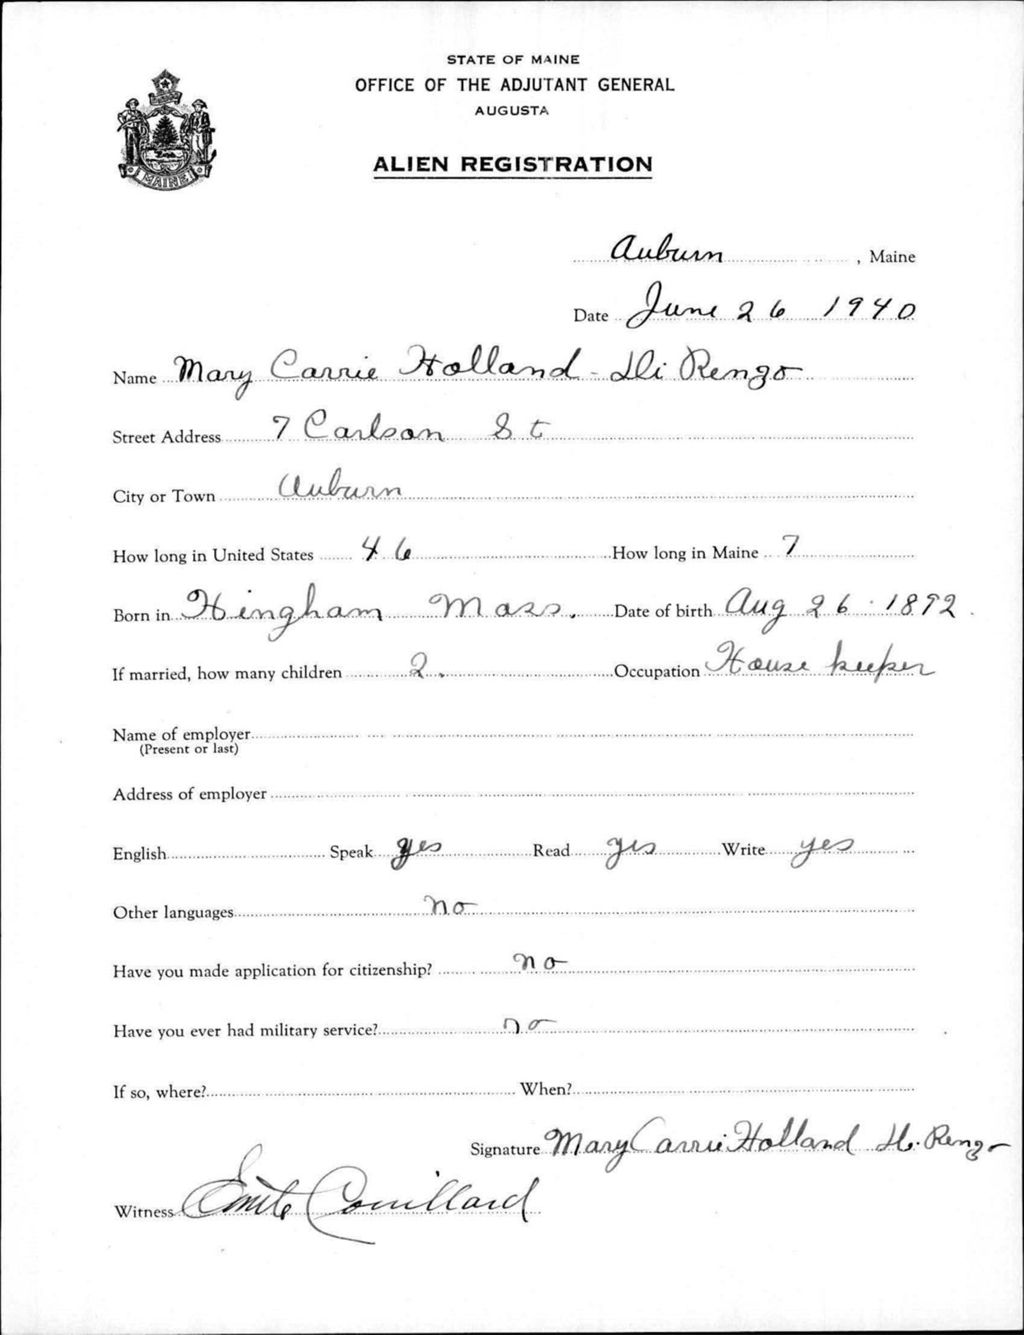 STATE OF MAINE
OFFICE OF THE ADJUTANT GENERAL
AUGUSTA
MAINE
ALIEN REGISTRATION
Auburn, Maine
Date June 26 1940
Name Mary Carrie Holland - Di Rengo
Street Address 7 Carlson St
City or Town Auburn
How long in United States 46 How long in Maine 7
Born in Hingham Mass. Date of birth Aug 26 1892
If married, how many children 2. Occupation House keeper
Name of employer
(Present or last)
Address of employer
English Speak yes Read yes Write yes
Other languages no
Have you made application for citizenship? no
Have you ever had military service? no
If so, where? When?
Signature Mary Carrie Holland Di Rengo
Witness Couillard